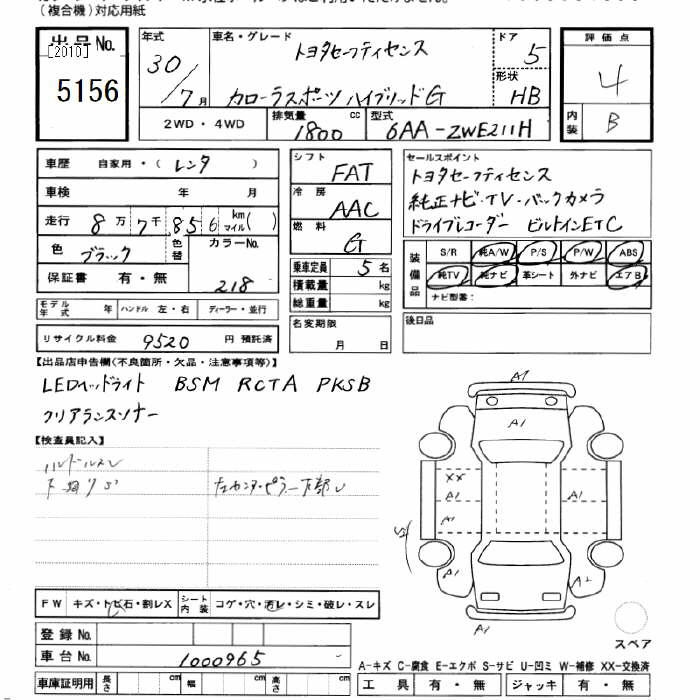 (複合機)対応用紙
出品No.
[2010]
5156
年式
30/7月
車名・グレード
トヨタセーフティセンス
カローラスポーツ ハイブリッドG
ドア
5
形状
HB
評価点
4
内装
B
2WD・4WD
排気量
1800 cc
型式
6AA-ZWE211H
車歴 自家用・(レンタ)
車検 年 月
走行 8万7千856 km マイル( )
色 ブラック
色替
カラーNo.
218
保証書 有・無
シフト
FAT
冷房
AAC
燃料
G
乗車定員 5名
積載量 kg
総重量 kg
セールスポイント
トヨタセーフティセンス
純正ナビ・TV・バックカメラ
ドライブレコーダー ビルトインETC
装備品
S/R 純A/W P/S P/W ABS
純TV 純ナビ 革シート 外ナビ エアB
ナビ型番:
モデル年式 年 ハンドル 左・右 ディーラー・並行
リサイクル料金 9520 円 預託済
名変期限
月 日
後日品
【出品店申告欄(不良箇所・欠品・注意事項等)】
LEDヘッドライト BSM RCTA PKSB
クリアランスソナー
【検査員記入】
ハンドルスレ
下廻りサ
左センターピラー下部
A1
A1
XX
A1
A1
A1
A1
A2
A1
スペア
FW キズ・トビ石・割レX
シート内装 コゲ・穴・汚レ・シミ・破レ・スレ
登録No.
車台No. 1000965
車庫証明用 長さ cm 幅 cm 高さ cm
A-キズ C-腐食 E-エクボ S-サビ U-凹ミ W-補修 XX-交換済
工具 有・無 ジャッキ 有・無